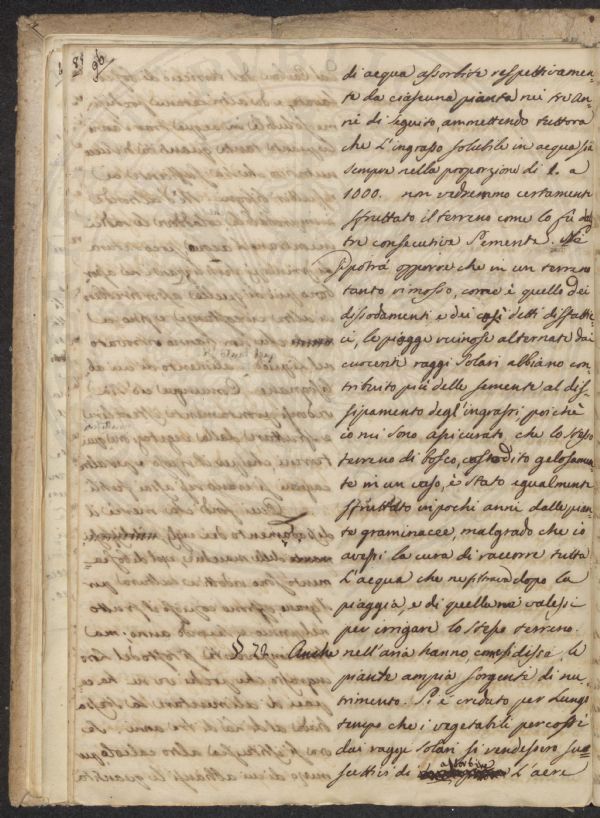 96
di acqua assorbite respettivamen-
te da ciascuna pianta nei tre An-
ni di seguito, ammettendo tuttora
che l'ingrasso solubile in acqua sia
sempre nella proporzione di 1. a
1000. non vedremmo certamente
sfruttato il terreno come lo fù da
tre consecutive Semente. Nè
si potrà opporre che in un terreno
tanto rimosso, come è quello dei
dissodamenti e dei così detti disfatti-
ci, le piogge ruinose alternate dai
cuocenti raggi Solari abbiano con-
tribuito più delle semente al dis-
sipamento degl'ingrassi, poichè
io mi sono assicurato, che lo stesso
terreno di bosco, custodito gelosamen-
te in un vaso, è stato egualmente
sfruttato in pochi anni dalle pian-
te graminacee, malgrado che io
avessi la cura di racorre tutta
l'acqua che ne filtrava dopo la
pioggia, e di quella me valessi
per irrigare lo stesso terreno.
§ 72. Anche nell'aria hanno, come si disse, le
piante ampia sorgente di nu-
trimento. Si è creduto per lungo
tempo che i vegetabili percossi
dai ragge Solari si rendessero su-
scettivi di assorbire l'aere